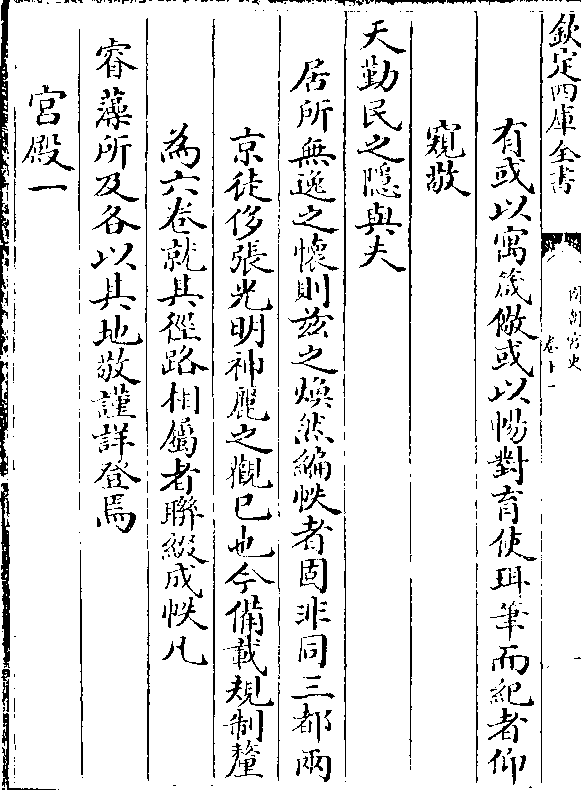 欽定四庫全書
國朝宮史
卷十一
有或以寓箴儆或以暢對育使珥筆而紀者仰
窺敬
天勤民之隱與夫
居所無逸之懷則茲之煥然編帙者固非同三都兩
京徒侈張光明神麗之觀已也今備載規制釐
為六卷就其徑路相屬者聯綴成帙凡
睿藻所及各以其地敬謹詳登焉
宮殿一